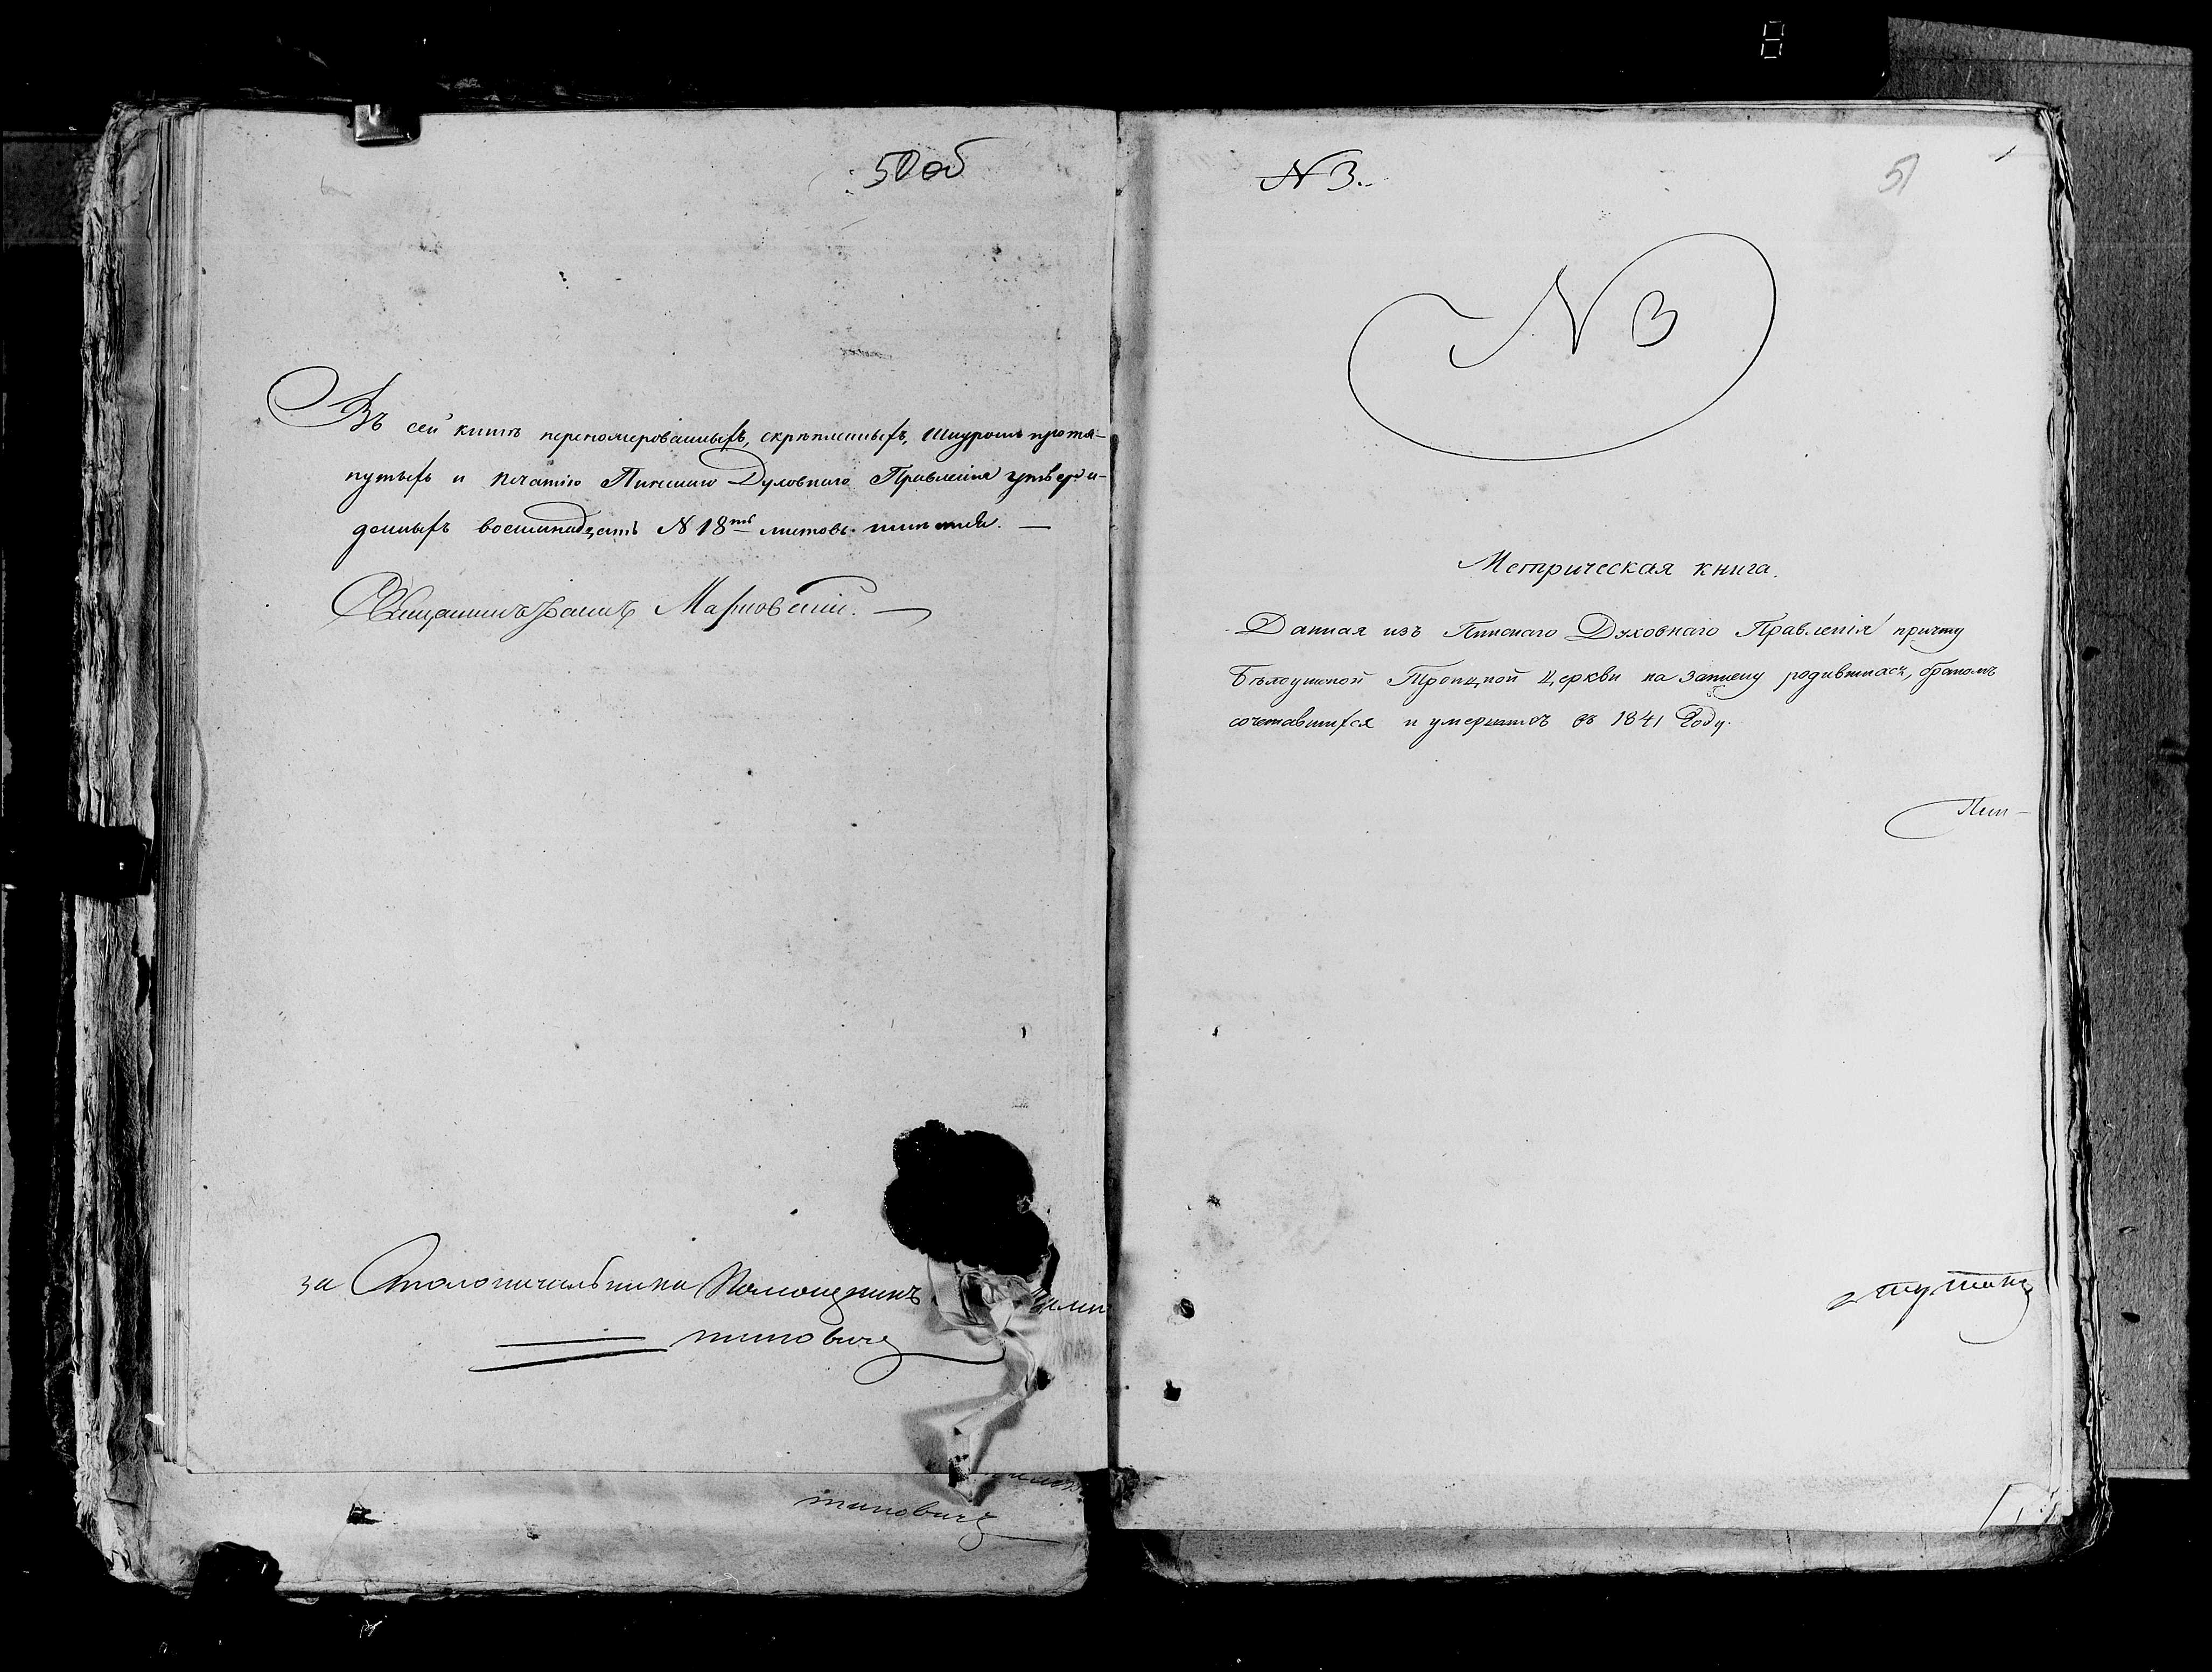 50об
Въ сей книгѣ перенумерованныхъ, скрѣпленныхъ, шнуромъ протя-
нутыхъ и печатію Пинскаго Духовнаго Правленія утверж-
денныхъ восемнадцать N 18ть листовъ
Священникъ Марковский. —
за Столоначальника Помощникъ
тиновичъ
тиновичъ
N 3.
51
N 3
Метрическая книга.
Данная изъ Пинскаго Духовнаго Правленія причту
Бѣлоушской Троицкой Церкви на записку родившихся, бракомъ
сочетавшихся и умершихъ въ 1841 Году.
Пин-